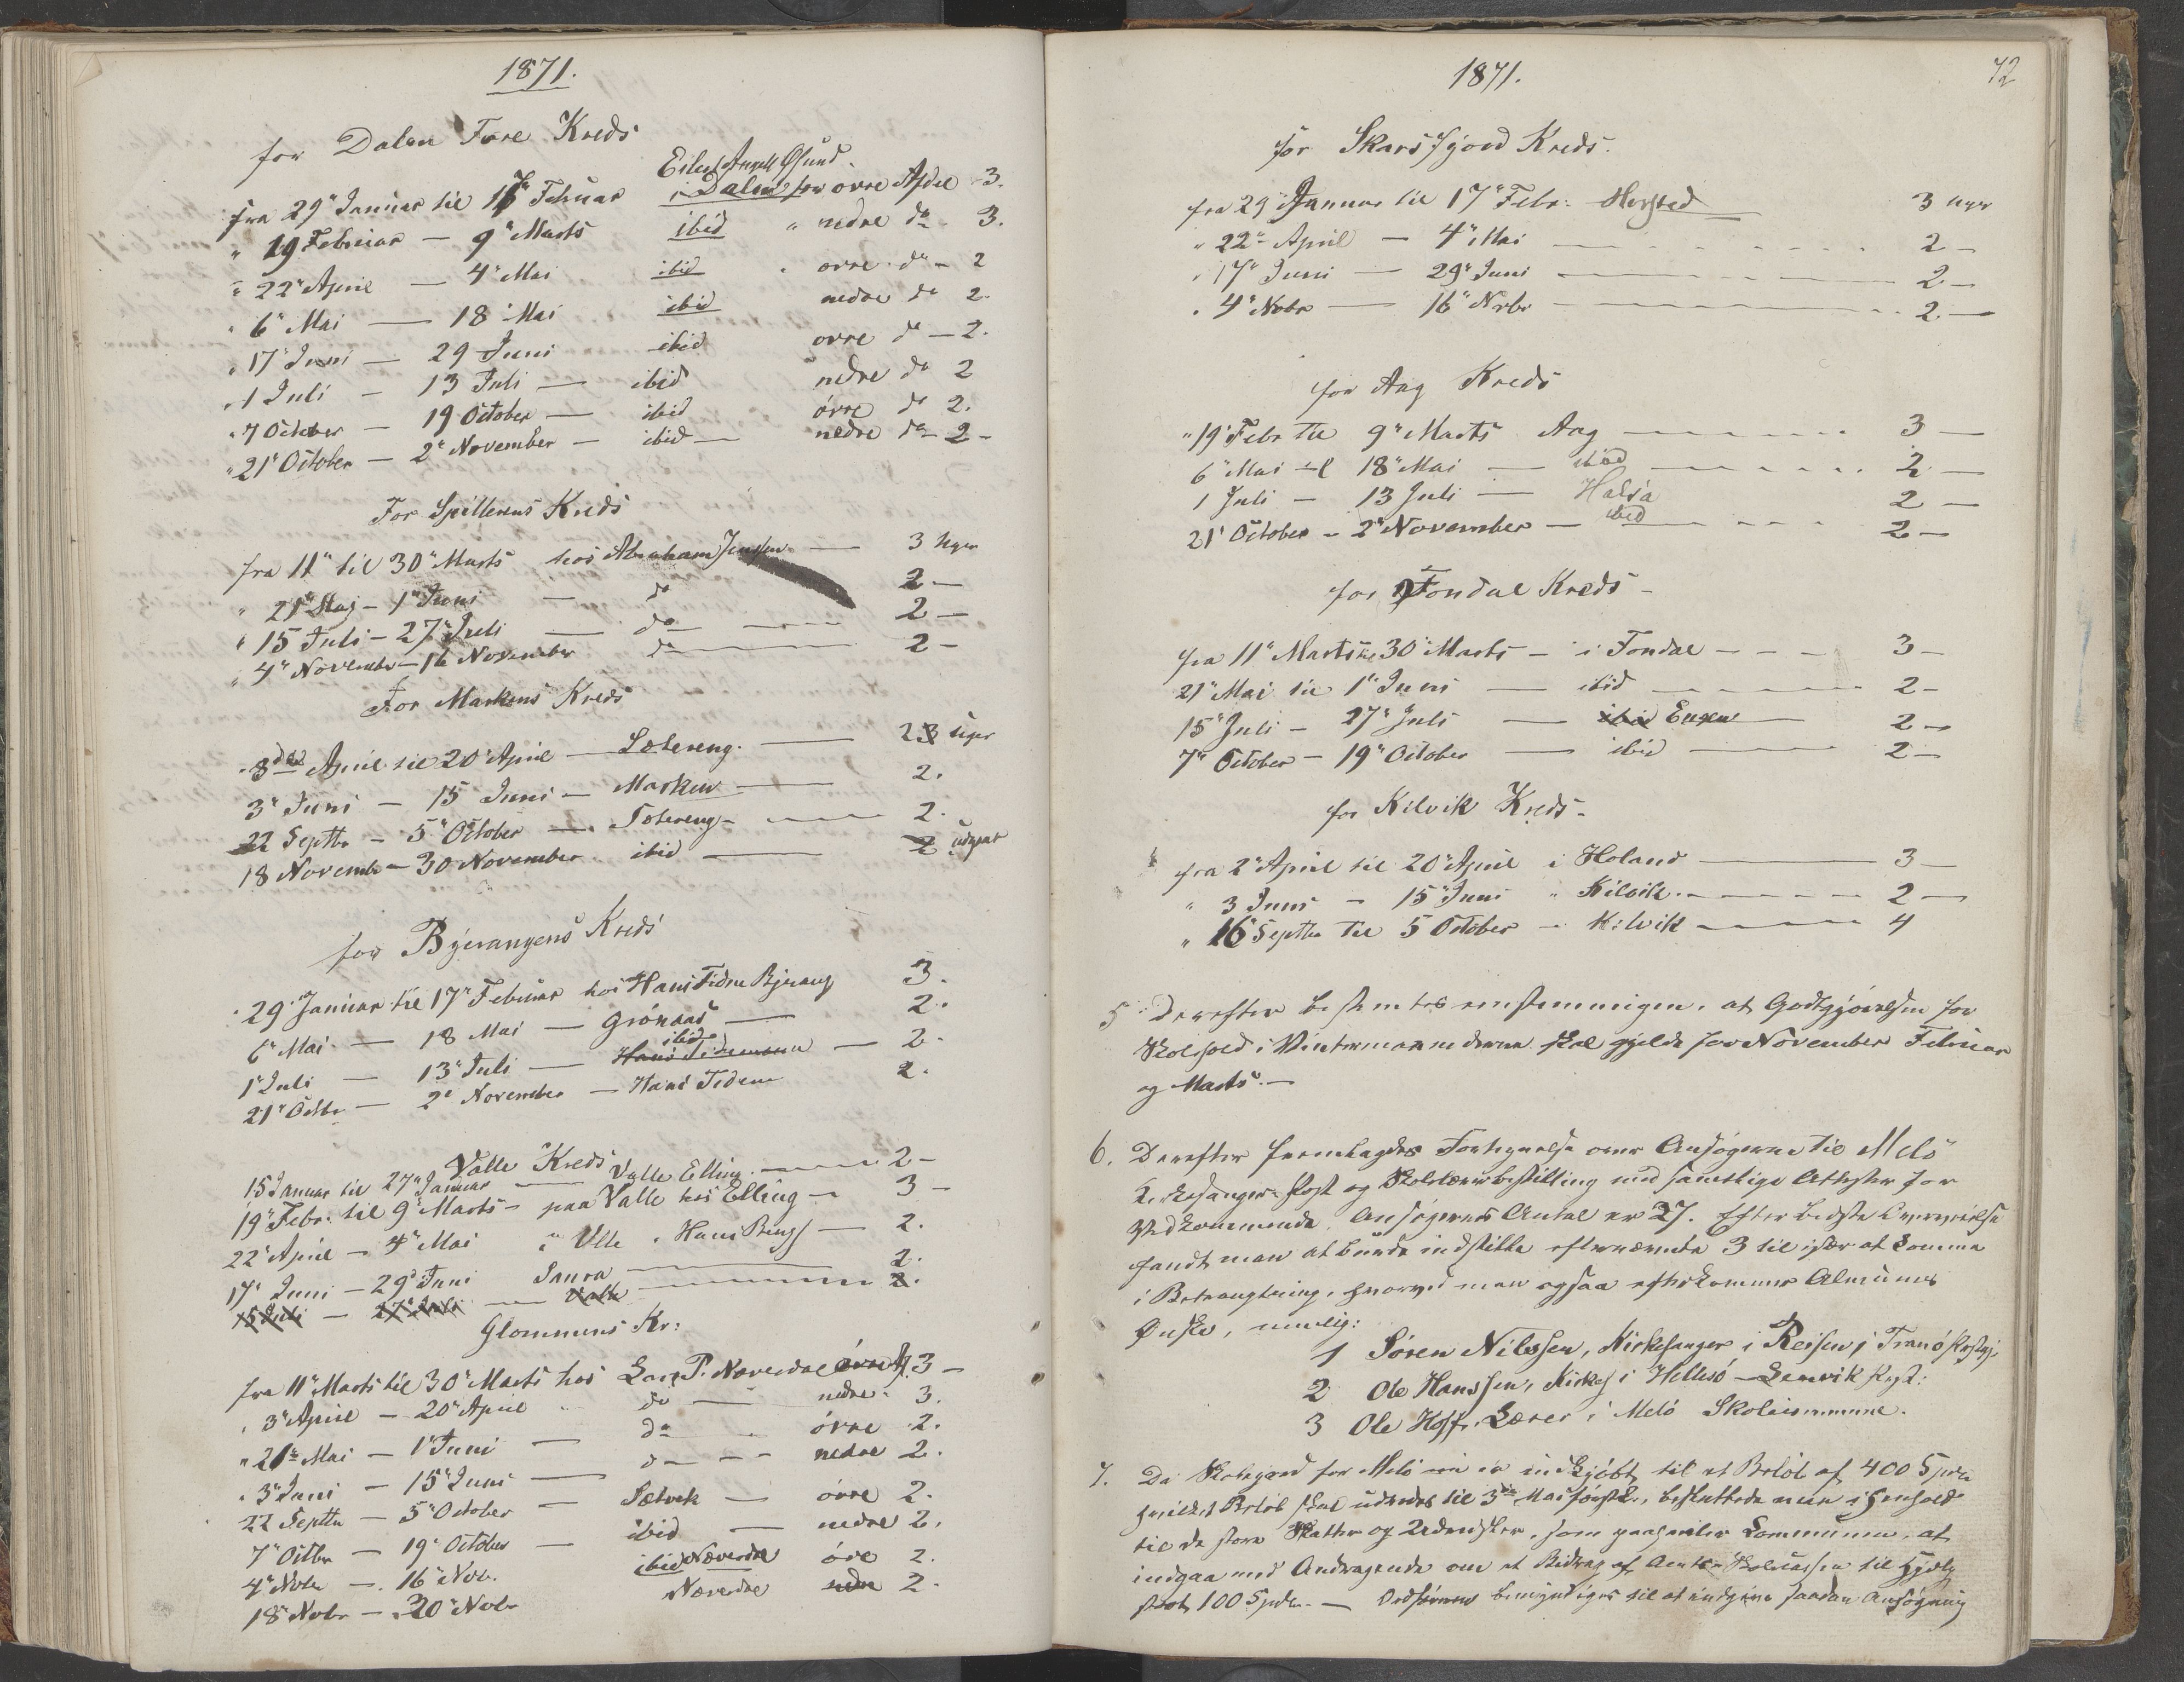 1871.
for Dalen Fore Kreds
fra 29" Januar til 17" Februar i Dalen for øvre Afdel 3.
" 19 Februar — 9" Marts ibid " nedre do 3.
" 22" April — 4" Mai ibid " øvre do - 2
" 6" Mai — 18" Mai ibid nedre do 2.
" 17" Juni — 29 Juni ibid øvre do — 2.
" 1 Juli — 13 Juli — ibid nedre do 2
" 7 October — 19 October — ibid øvre do 2.
" 21" October — 2" November — ibid — nedre do - 2 -
For Spillernes Kreds
fra 11" til 30" Marts hos Abraham Jenssen — 3 Uger
" 21" Maj — 1" Juni — do 2 —
" 15 Juli — 27" Juli — do 2 —
" 4" November — 16 November do 2 —
For Markens Kreds
April til 20" April — Sætereng. — 2 Uger
3" Juni — 15 Juni — Marken — 2.
22 Septbr — 5" October — Sætereng — 2.
18 Novembr — 30 November ibid — 2 udgaar
for Bjerangens Kreds
29" Januar til 17" Februar hos Hans Tidem Bjerang 3.
6" Mai — 18 Mai — Grönaas — 2.
1" Juli — 13" Juli — ibid Hans Tidemann — 2.
21" Octbr — 2" November — Hans Tidem 2.
Valle Kreds
15 Januar til 27" Januar — Valle Elling. — 2 -
19" Febr. til 9" Marts — paa Valle hos Elling — 3 -
22" April — 4" Mai " Hans — 2.
17" Juni — 29" Juni Saura — 2.
15 Juli — 27" Juli — Valle — 2.
Glommens Kr:
fra 11" Marts til 30" Marts hos Lars P. Næverdal øvre A 3 -
" 3" April — 20" April " do — nedre 3.
" 21" Mai — 1" Juni — do " øvre 2.
" 3" Juni — 15" Juni — do — nedre 2.
22 Septbr — 5" October — Sætvik — øvre 2.
7" Octbr — 19" October — ibid — nedre 2.
4" Nobr — 16" Nov. ibid Næverdal övre 2.
18" Nobr — 30" Nobr Næverdal nedre 2.
1871. 72
for Skarsfjord Kreds.
fra 29" Januar til 17" Febr. 3 Uger
" 22" April — 4" Mai — 2 —
" 17" Juni — 29" Juni — 2 —
" 4" Nobr — 16" Nobr — 2 —
for Aag Kreds
" 19" Febr til 9" Marts Aag — 3 —
6" Mai til 18" Mai — ibid — 2 —
1 Juli — 13 Juli — Halsa 2 —
21" October — 2" November — ibid — 2 —
for Fondal Kreds -
fra 11" Marts til 30" Marts — i Fondal — 3 —
21" Mai til 1" Juni — ibid — 2 —
15" Juli — 27" Juli — ibid Engen — 2 —
7" October — 19" October — ibid — 2 —
for Kilvik Kreds -
fra 2" April til 20" April i Holand — 3 —
" 3 Juni — 15" Juni " Kilvik — 2 —
" 16 Septbr til 5 October — Kilvik — 4
5 Derefter bestemtes eenstemmigen, at Godtgjörelsen for
Skolhold i Vintermaanederne skal gjelde for November Februar
og Marts. —
6. Derefter fremlagdes Fortegnelse over Ansögerne til Melö
Kirkesanger Post og Skolelærerbestilling med samtlige Attester for
Vedkommende. Ansögernes Antal er 27. Efter bedste Overveielse
fandt man at burde indstille efternævnte 3 til især at komme
i Betragtning, hvorved man ogsaa efterkommer Almuens
Önske, nemlig:
1 Sören Nilssen, Kirkesanger i Reisen, Tranö Prstgj.
2 Ole Hanssen, Kirkes. i Hellesö — Lenvik Prgd:
3 Ole Hoff, Lærer i Melö Skolecommune.
7. Da Skolegaard for Melö er indkjöbt til et Belöb af 400 Spdr
hvilket Belöb skal udredes til 3die Mai förstk., besluttede man i Henhold
til de store Skatter og Udredsler, som paahviler Communen, at
indgaa med Andragende om et Bidrag af Amts-Skolecassen til Hjelp
stort 100 Spdr. — Ordföreren bemyndiges til at indgive saadan Ansögning